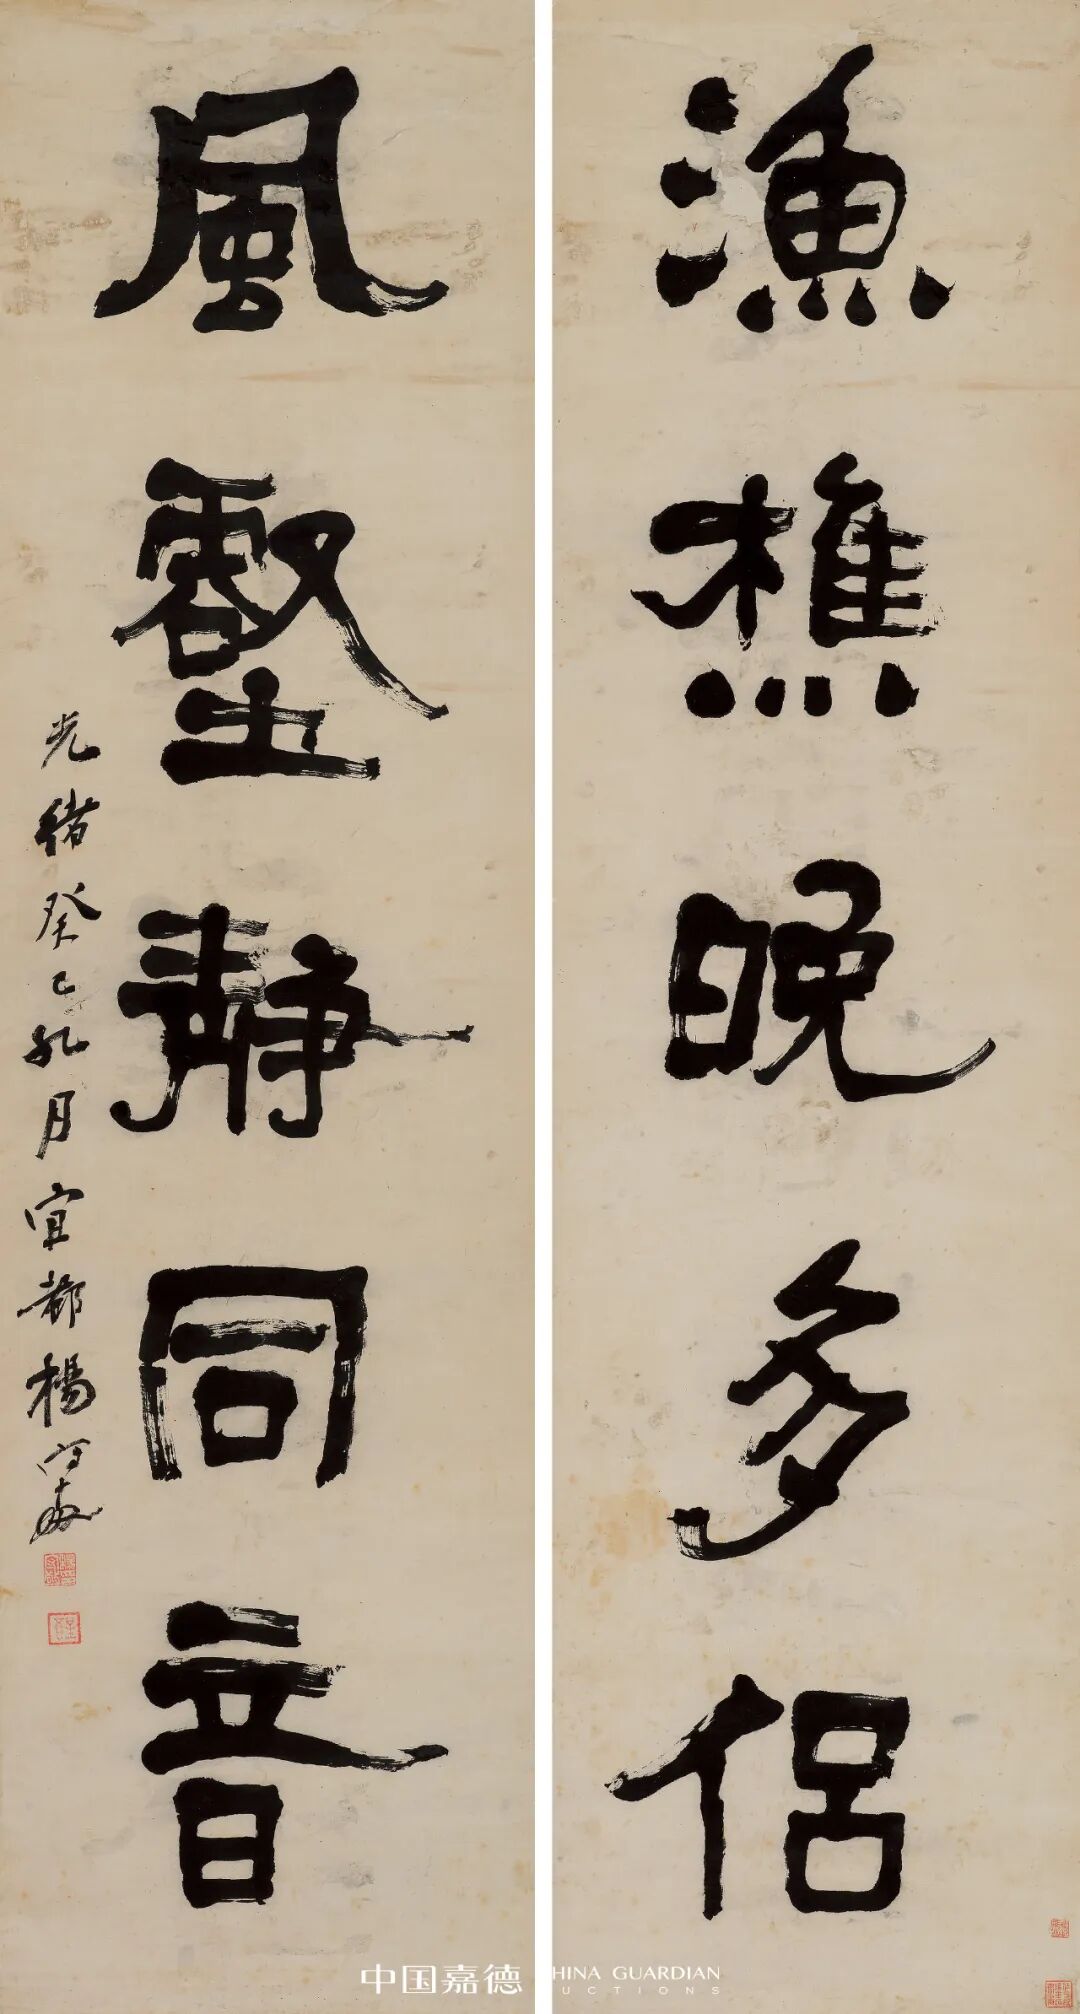 漁樵晚多侶
風壑靜同音
光緒癸巳孔月宜都楊守敬
中国嘉德
HINA GUARDIAN
UCTIONS